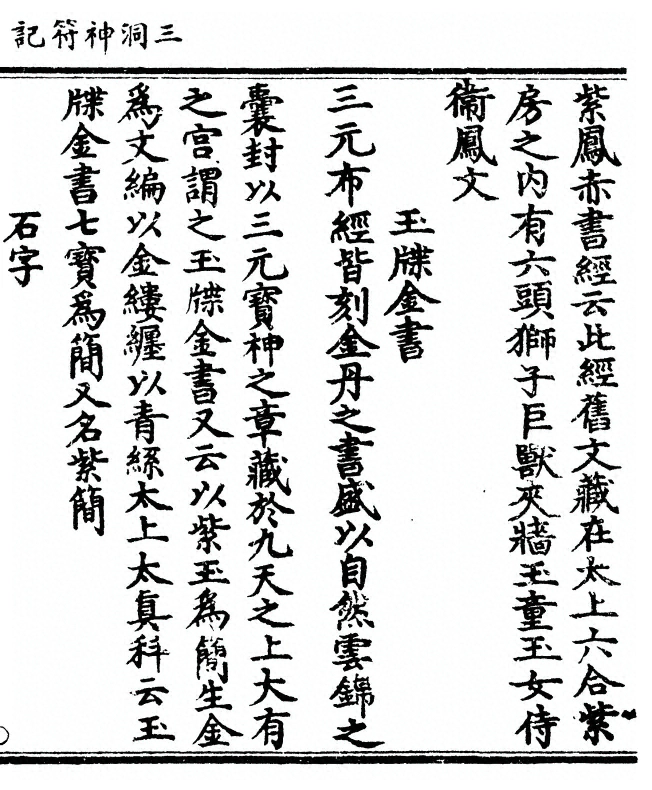 三洞神符記
紫鳳赤書經云此經舊文藏在太上六合紫
房之內有六頭獅子巨獸夾牆玉童玉女侍
衞鳳文
玉牒金書
三元布經皆刻金丹之書盛以自然雲錦之
囊封以三元寶神之章藏於九天之上大有
之宮謂之玉牒金書又云以紫玉為簡生金
為文編以金縷纏以青絲太上太真科云玉
牒金書七寶為簡又名紫簡
石字